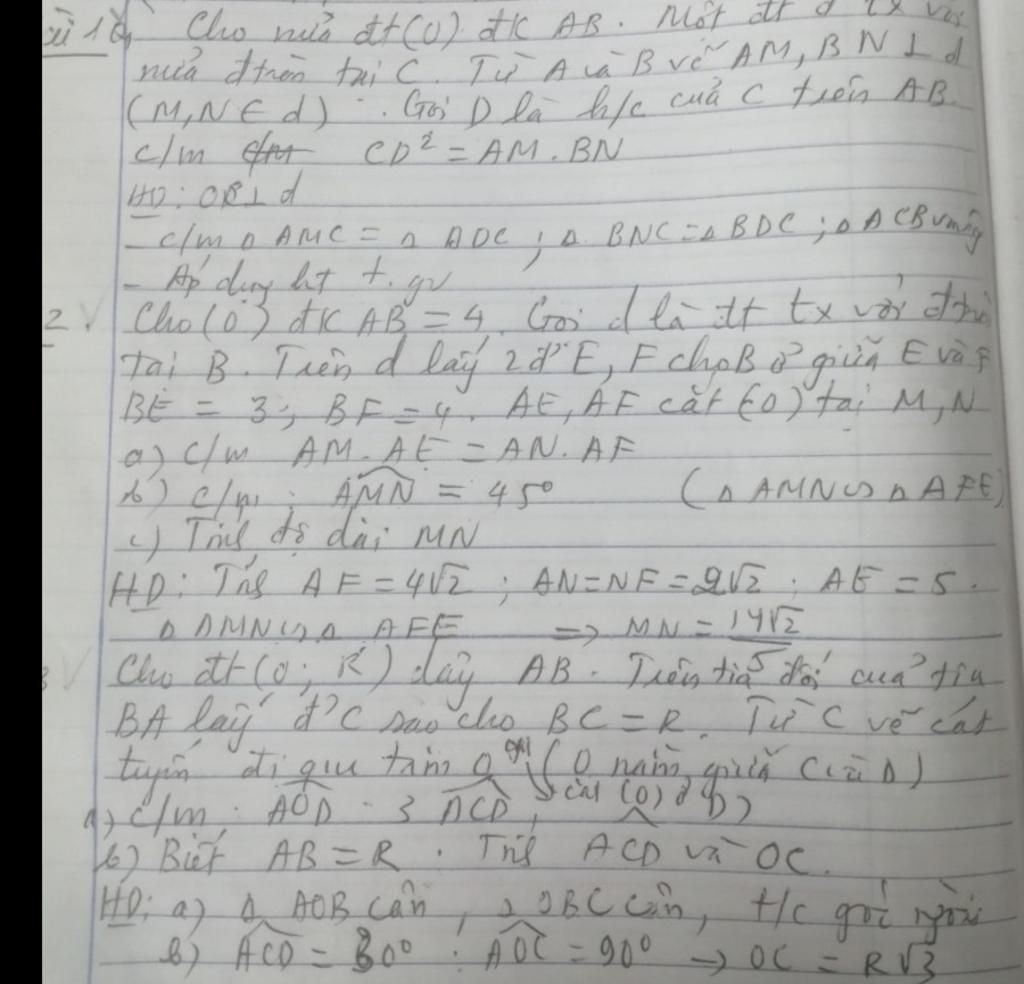 Bài 1: Cho nửa đt(O) đK AB. Một đt d tx với
nửa đtròn tại C. Từ A và B vẽ AM, BN ⊥ d
(M, N ∈ d). Gọi D là h/c của C trên AB.
c/m CD² = AM. BN
HD: OC ⊥ d
- c/m Δ AMC = Δ ADC; Δ BNC = Δ BDC; Δ ACB vuông
- Áp dụng ht t.gv
2. Cho (O) đK AB = 4. Gọi d là đt tx với đtrò
tại B. Trên d lấy 2 đ' E, F cho B ở giữa E và F
BE = 3; BF = 4. AE, AF cắt (O) tại M, N
a) c/m AM. AE = AN. AF
b) c/m: AMN = 45° (Δ AMN ∽ Δ AFE)
c) Tính độ dài MN
HD: Tính AF = 4√2; AN = NF = 2√2; AE = 5.
Δ AMN ∽ Δ AFE => MN = 14√2/5
Cho đt (O; R) dây AB. Trên tia đối của tia
BA lấy đ' C sao cho BC = R. Từ C vẽ cát
tuyến đi qua tâm O (O nằm giữa C và D)
cắt (O) ở D
a) c/m: AOD = 3 ACD
b) Biết AB = R. Tính ACD và OC.
HD: a) Δ AOB cân, Δ OBC cân, t/c góc ngoài
b) ACD = 30°. AOC = 90° → OC = R√3